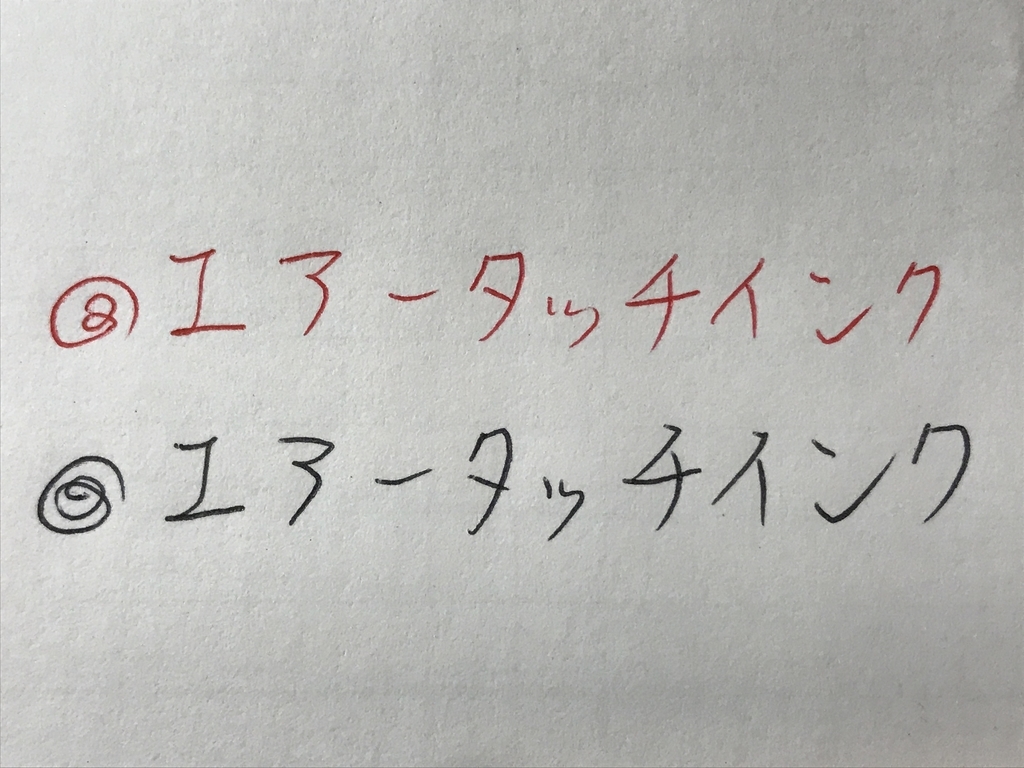 ◎エアータッチインク
◎エアータッチインク